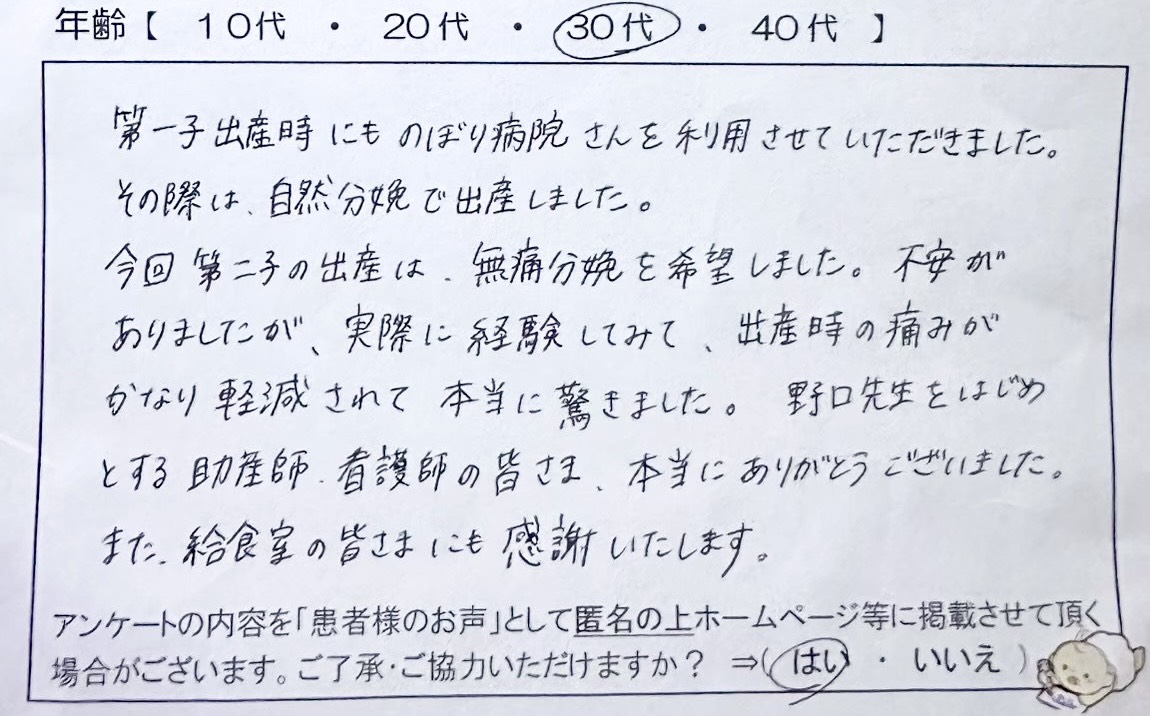 年齢【 10代 ・ 20代 ・ 30代 ・ 40代 】
第一子出産時にも のぼり病院さんを利用させていただきました。
その際は、自然分娩で出産しました。
今回第二子の出産は、無痛分娩を希望しました。不安が
ありましたが、実際に経験してみて、出産時の痛みが
かなり軽減されて本当に驚きました。 野口先生をはじめ
とする助産師、看護師の皆さま、本当にありがとうございました。
また、給食室の皆さまにも感謝いたします。
アンケートの内容を「患者様のお声」として匿名の上ホームページ等に掲載させて頂く
場合がございます。ご了承・ご協力いただけますか？ ⇒( はい ・ いいえ )